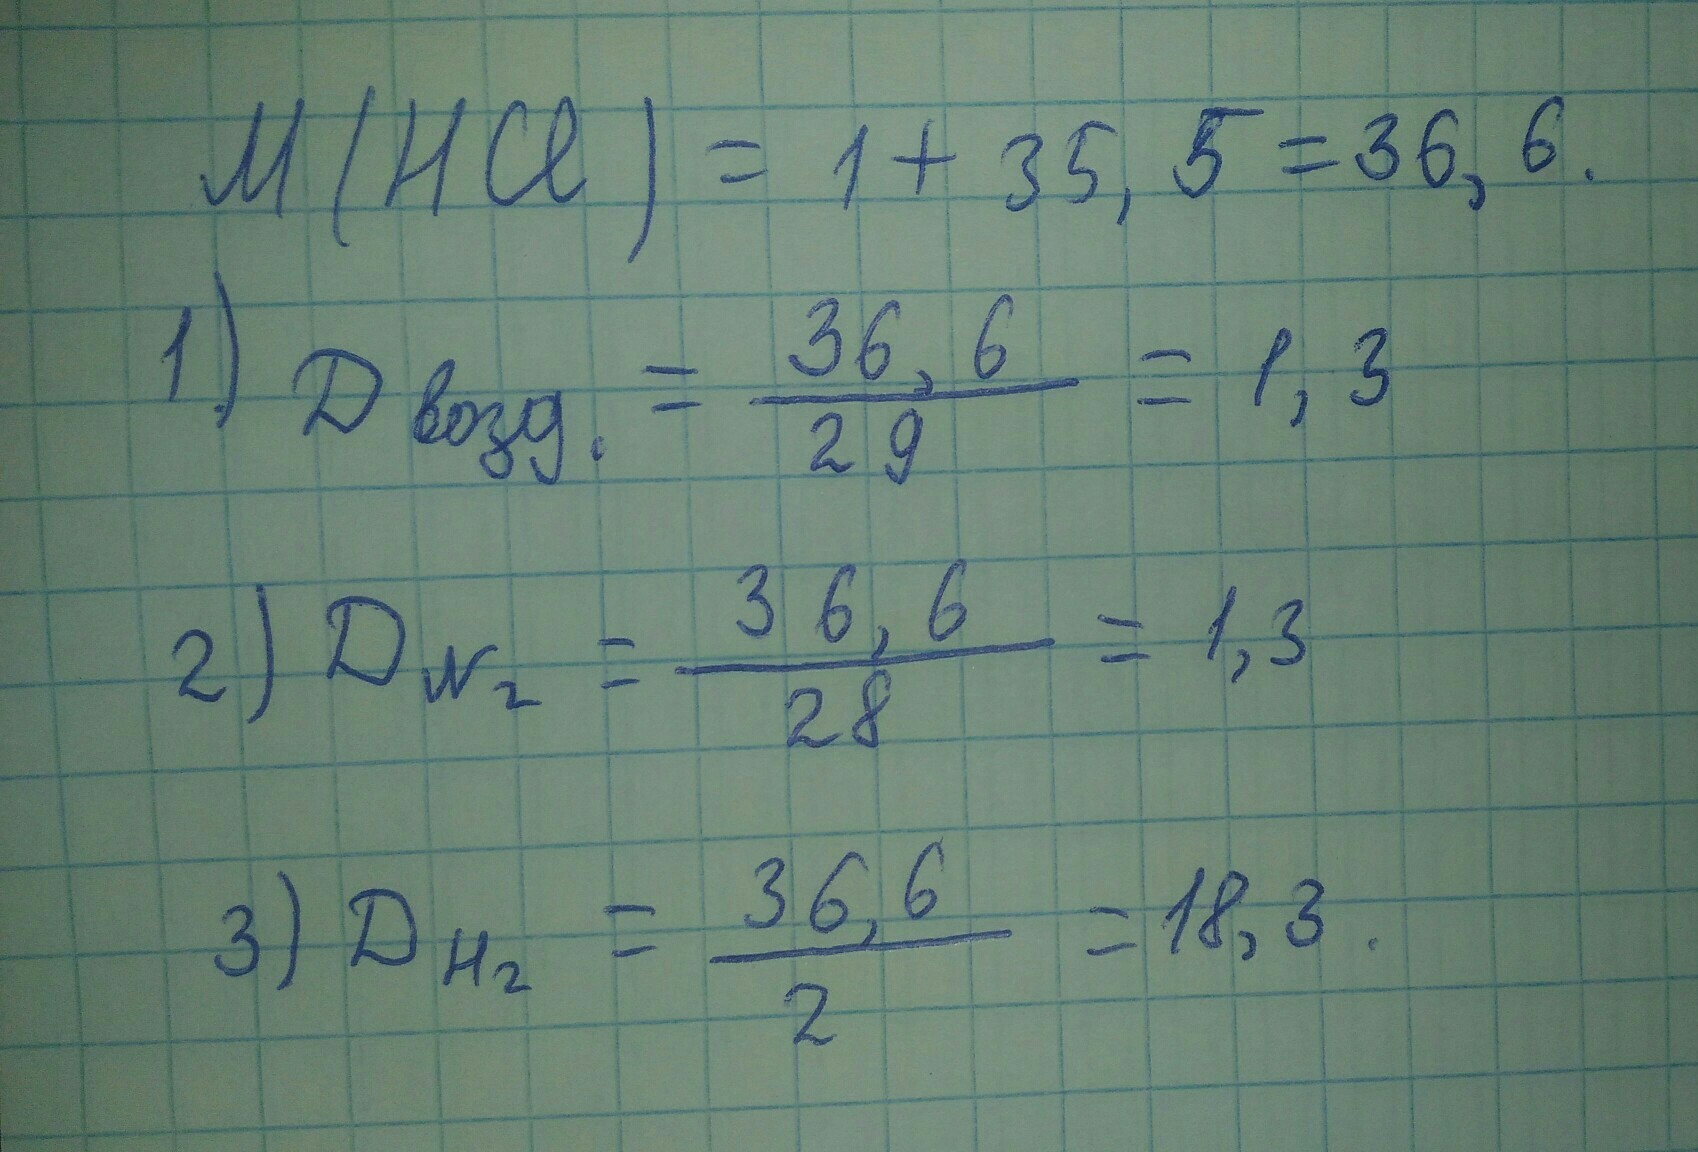 M(HCl) = 1 + 35,5 = 36,6.
1) D возд. = 36,6 / 29 = 1,3
2) D N₂ = 36,6 / 28 = 1,3
3) D H₂ = 36,6 / 2 = 18,3.